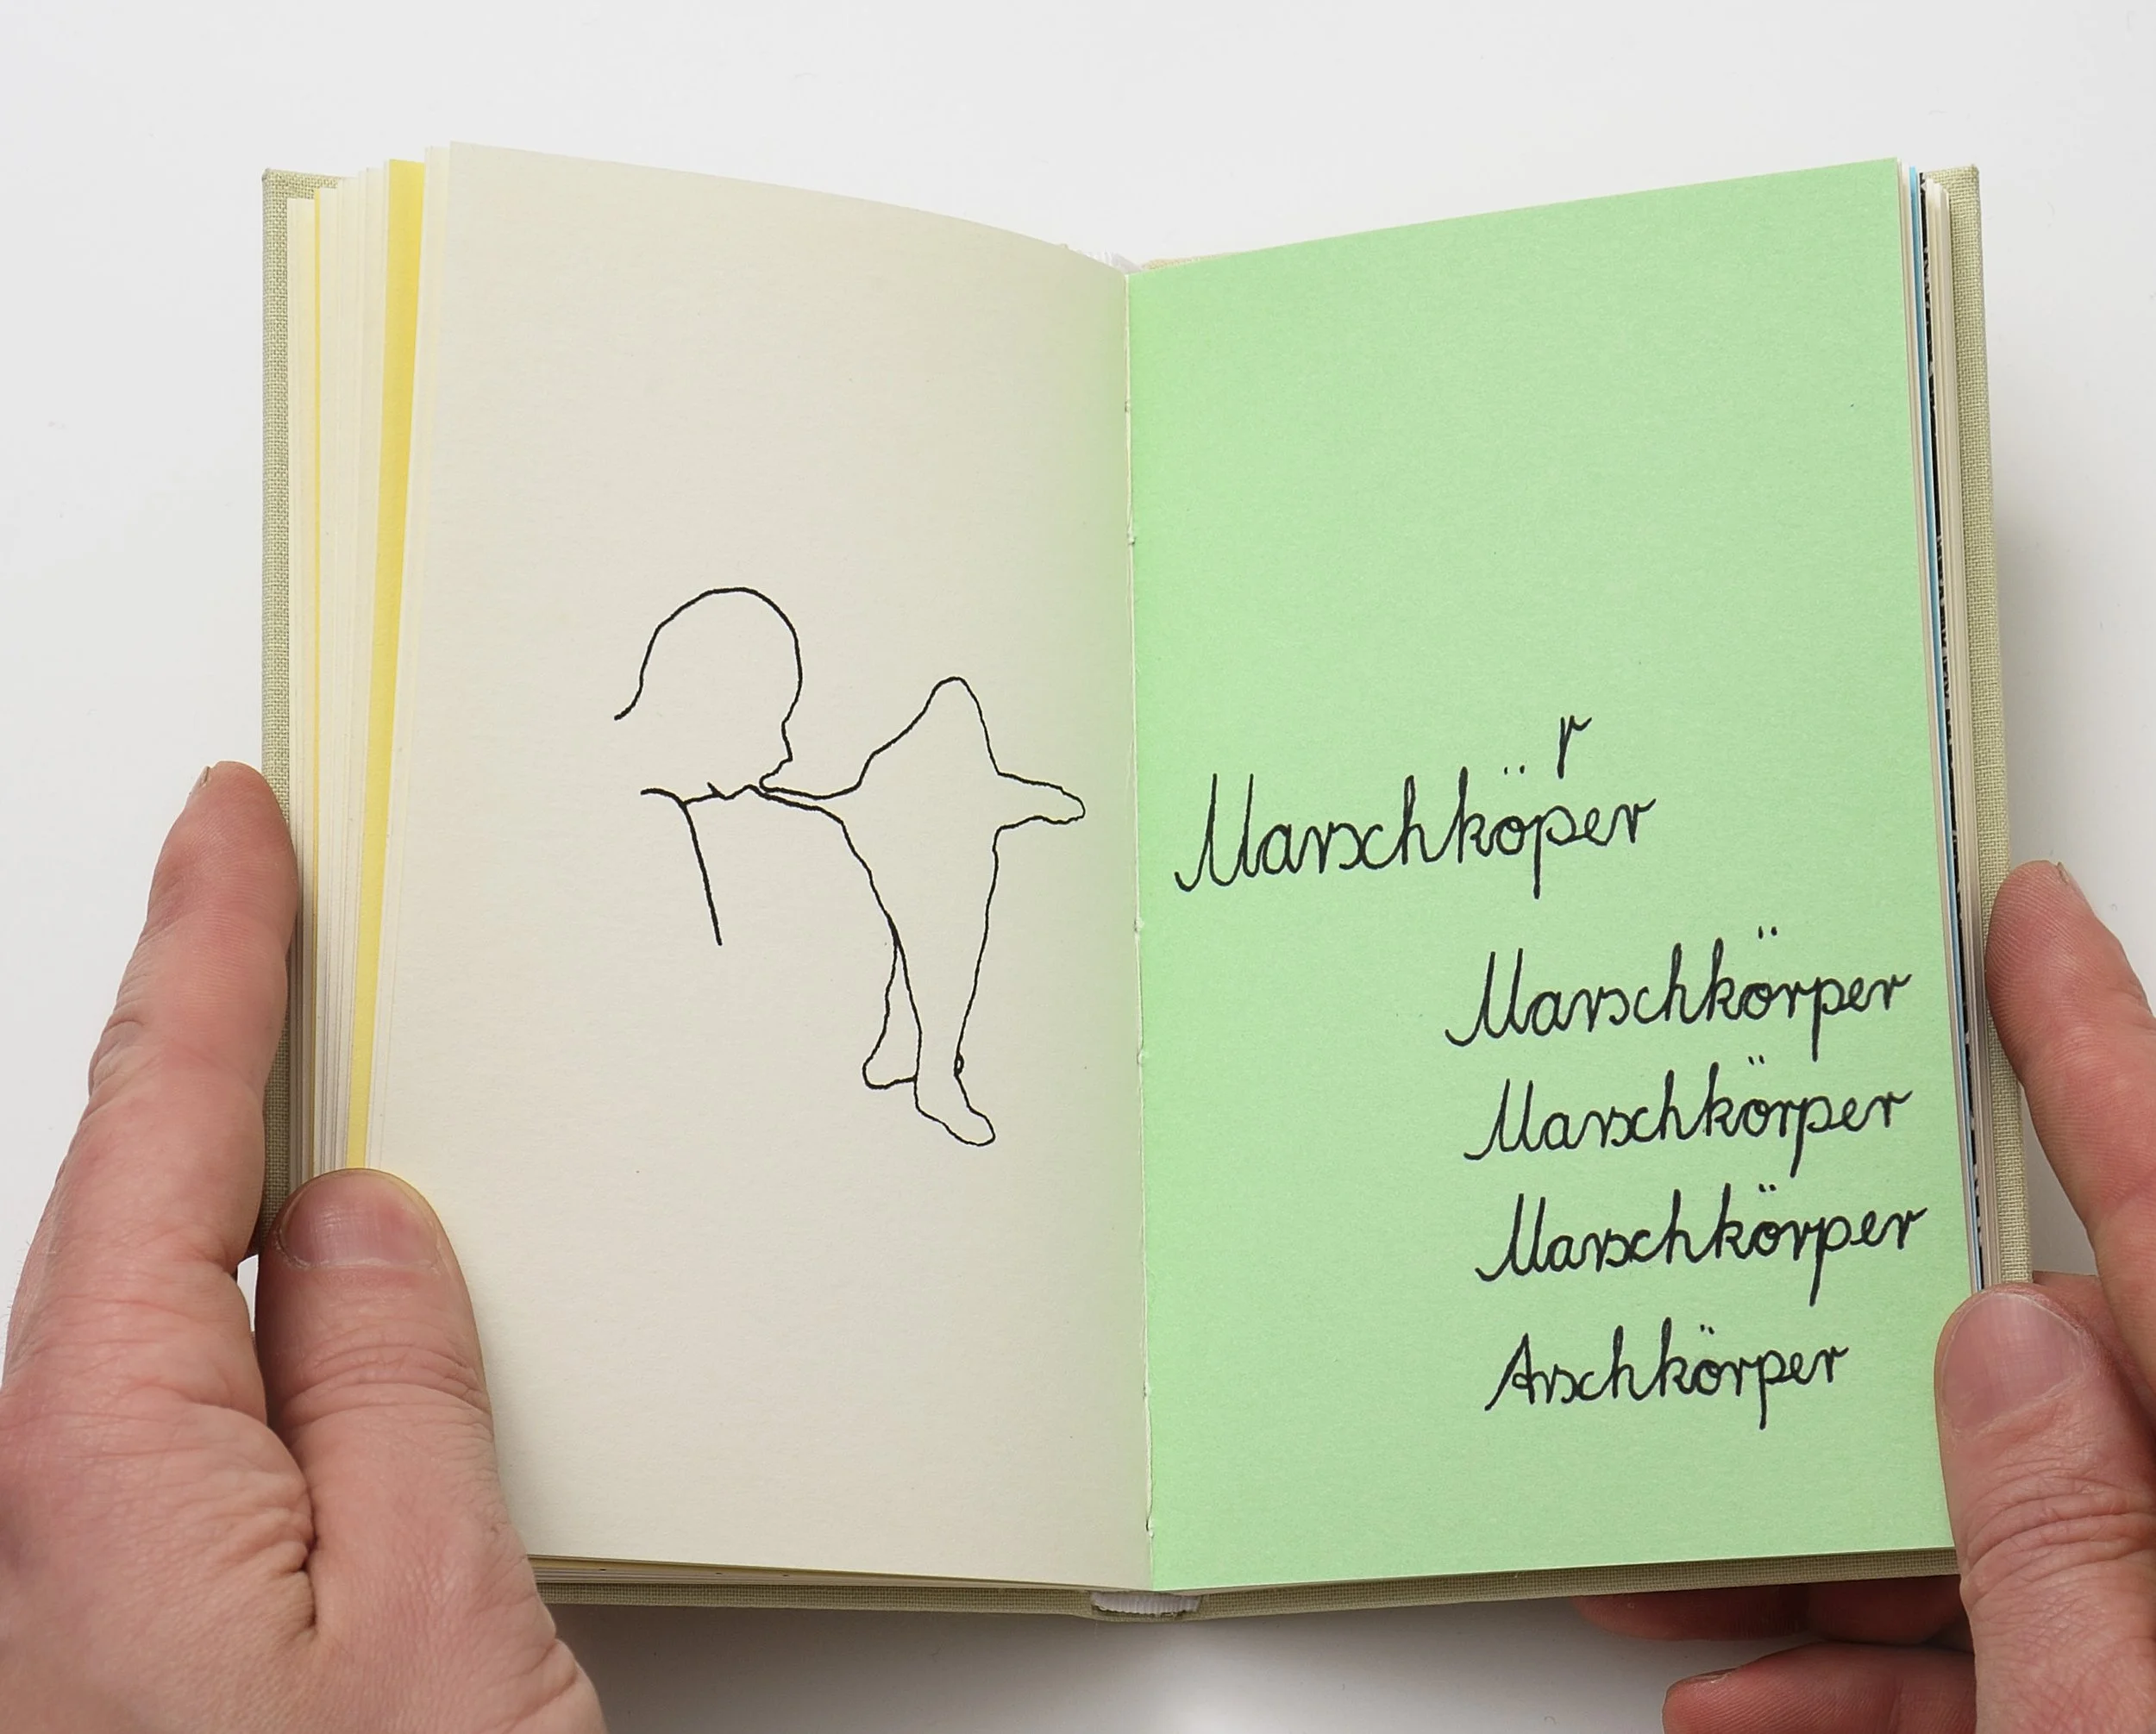 r
Marschköper
Marschkörper
Marschkörper
Marschkörper
Arschkörper